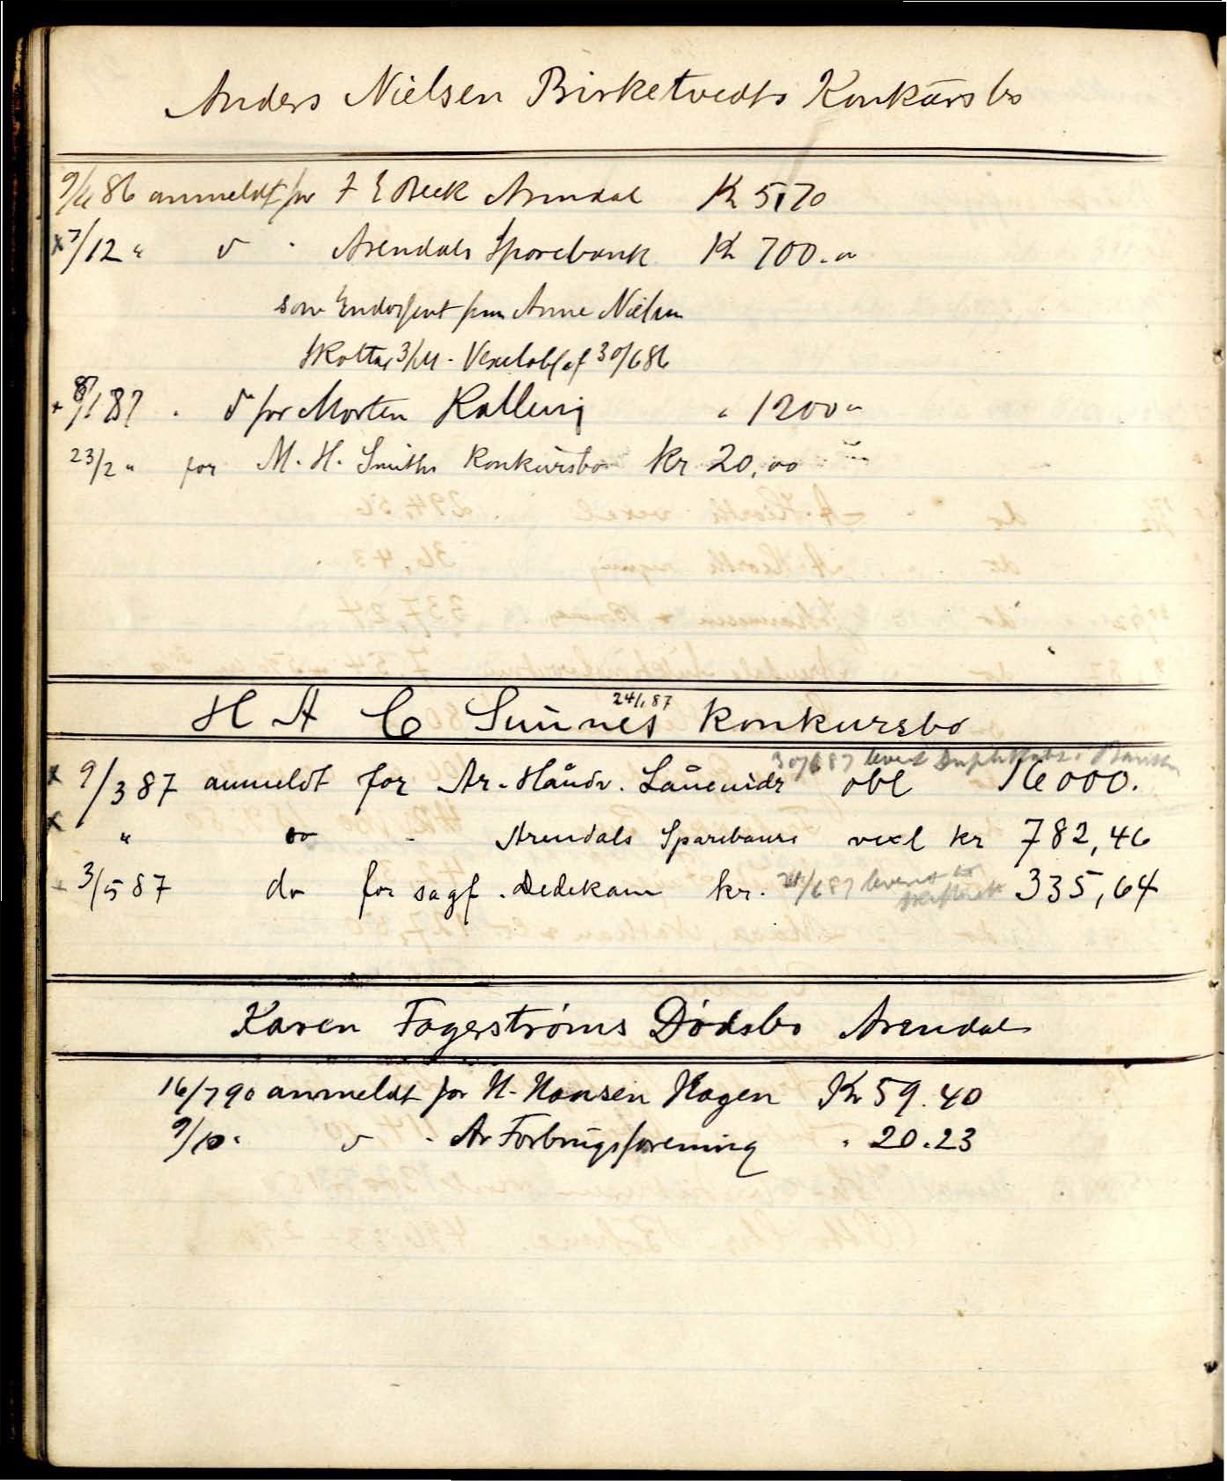 Anders Nielsen Birketvedts Konkursbo
86 anmeldt for F E Beck Arendal Kr 5,70
x 7/12 " d " Arendals Sparebank Kr 700.
som Endossent fra Anne Nielsen
30/6 86
87 " d for Morten Kallevig " 1200
23/2 " for M. H. Smiths Konkursbo Kr 20,00
24/1 87
H A C Sunnes konkursbo
30/6 87 levert
x 9/3 87 anmeldt for Ar. Håndv. Låneindr obl 16000.
x " do - Arendals Sparebank vexl kr 782,46
3/5 87 do for sagf. Dedekam kr. 335,64
24/6 87 leveret
Karen Fagerstrøms Dødsbo Arendal
16/7 90 anmeldt for N. Hansen Hagen Kr 59.40
9/10 " d " Ar Forbrugsforening " 20.23